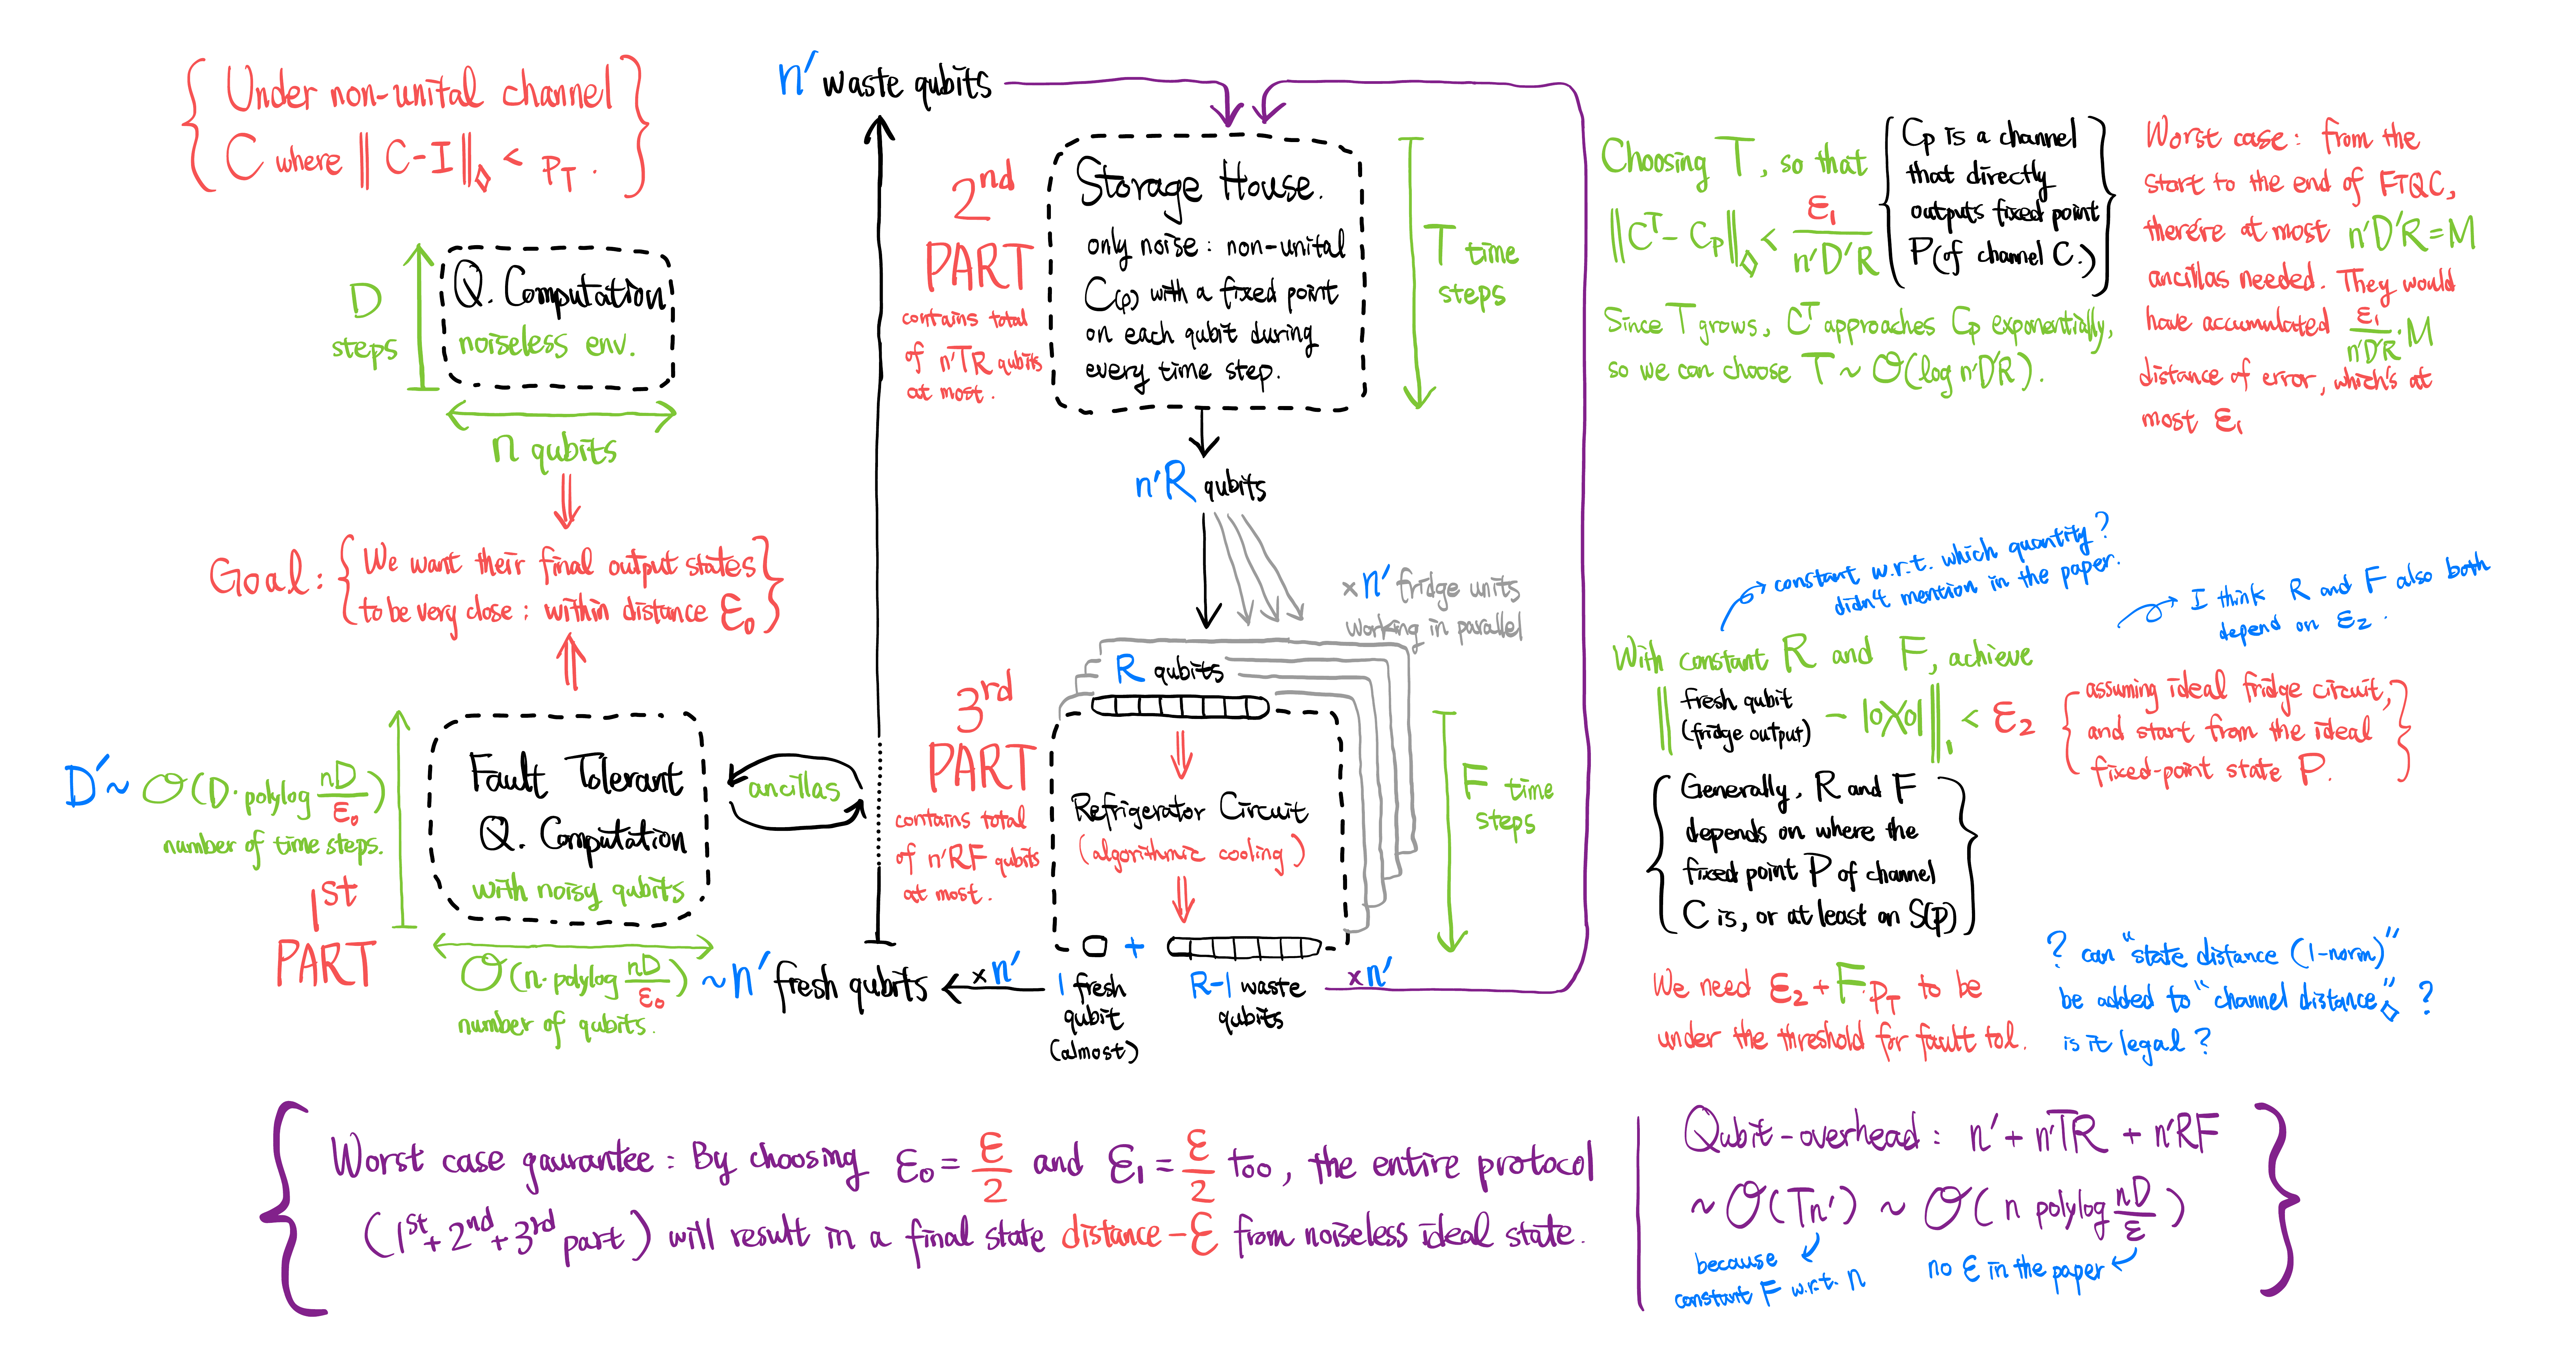 Under non-unital channel
C where ‖ C-I ‖◊ < p_T .
D
steps
Q. Computation
noiseless env.
n qubits
Goal : { We want their final output states
to be very close : within distance ε₀ }
D′ ~ O(D· polylog nD/ε₀)
number of time steps.
1st
PART
Fault Tolerant
Q. Computation
with noisy qubits
O(n· polylog nD/ε₀)
number of qubits.
ancillas
~ n′ fresh qubits
n′ waste qubits
2nd
PART
contains total
of n′TR qubits
at most .
Storage House.
only noise : non-unital
C(ρ) with a fixed point
on each qubit during
every time step.
T time
steps
n′R qubits
× n′ fridge units
working in parallel
3rd
PART
contains total
of n′RF qubits
at most .
R qubits
Refrigerator Circuit
(algorithmic cooling)
F time
steps
× n′
1 fresh
qubit
(almost)
+
R-1 waste
qubits
× n′
Choosing T, so that
‖C^T - Cp‖◊ < ε₁/n′D′R
{ Cp is a channel
that directly
outputs fixed point
P(of channel C.) }
Since T grows, C^T approaches Cp exponentially,
so we can choose T ~ O(log n′D′R).
Worst case : from the
start to the end of FTQC,
there're at most n′D′R = M
ancillas needed. They would
have accumulated ε₁/n′D′R · M
distance of error, which's at
most ε₁
constant w.r.t. which quantity ?
didn't mention in the paper.
I think R and F also both
depend on ε₂ .
With constant R and F, achieve
‖ fresh qubit
(fridge output) - |0X0| ‖₁ < ε₂
{ assuming ideal fridge circuit,
and start from the ideal
fixed-point state P. }
{ Generally, R and F
depends on where the
fixed point P of channel
C is, or at least on S(p) }
We need ε₂ + F·p_T to be
under the threshold for fault tol.
? can "state distance (1-norm)"
be added to "channel distance◊" ?
is it legal ?
Worst case gaurantee : By choosing ε₀ = ε/2 and ε₁ = ε/2 too, the entire protocol
(1st + 2nd + 3rd part) will result in a final state distance-ε from noiseless ideal state.
Qubit-overhead : n′ + n′TR + n′RF
~ O(Tn′) ~ O( n polylog nD/ε )
because
constant F w.r.t. n
no ε in the paper